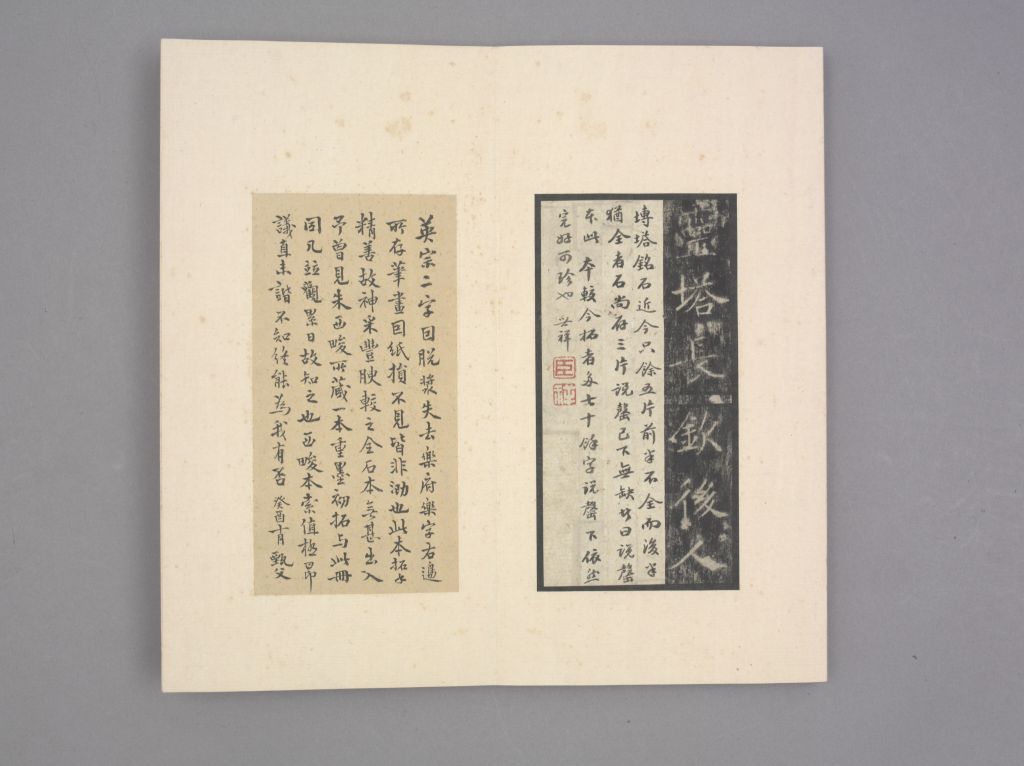 靈塔長欽後人
塼塔銘石近今只餘五片前半不全而後半
猶全者石尚存三片說罄已下無缺此曰說罄
本此本較今拓者多七十餘字說罄下依然
完好可珍也 祥
臣
英宗二字因脫漿失去樂府樂字右邊
所存筆畫因紙損不見皆非泐也此本拓
精善故神采豐腴較之全石本無甚出入
予曾見朱酉畯所藏一本重墨初拓与此冊
同凡竝觀累日故知之也酉畯本索值極昂
議直未諧不知終能為我有否 癸酉 甄父